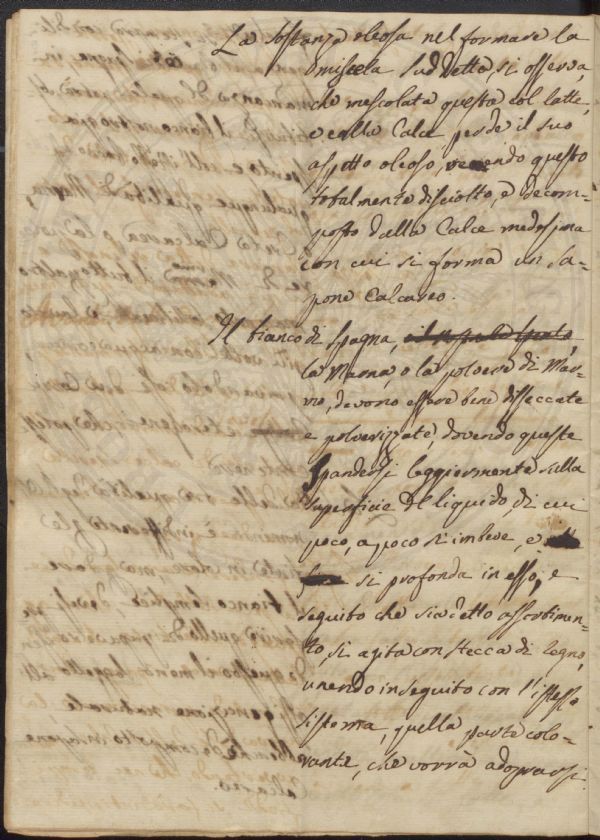 La sostanza oleosa nel formare la
miscela suddetta si osserva,
che mescolata questa col latte,
e colla Calce perde il suo
aspetto oleoso, venendo questo
totalmente disciolto, e decom-
posto dalla Calce medesima
con cui si forma un sa-
pone Calcareo.
Il bianco di Spagna,
la Marna, o la polvere di Mar-
mo, devono essere bene disseccate
e polverizzate, dovendo queste
spandersi leggiermente sulla
superficie del liquido, di cui
poco, a poco si imbeve, e
si profonda in esso, e
seguito che sia detto assorbimen-
to, si agita con stecca di legno,
unendo in seguito con l'istesso
sistema, quella parte colo-
rante, che vorrà adoprarsi.